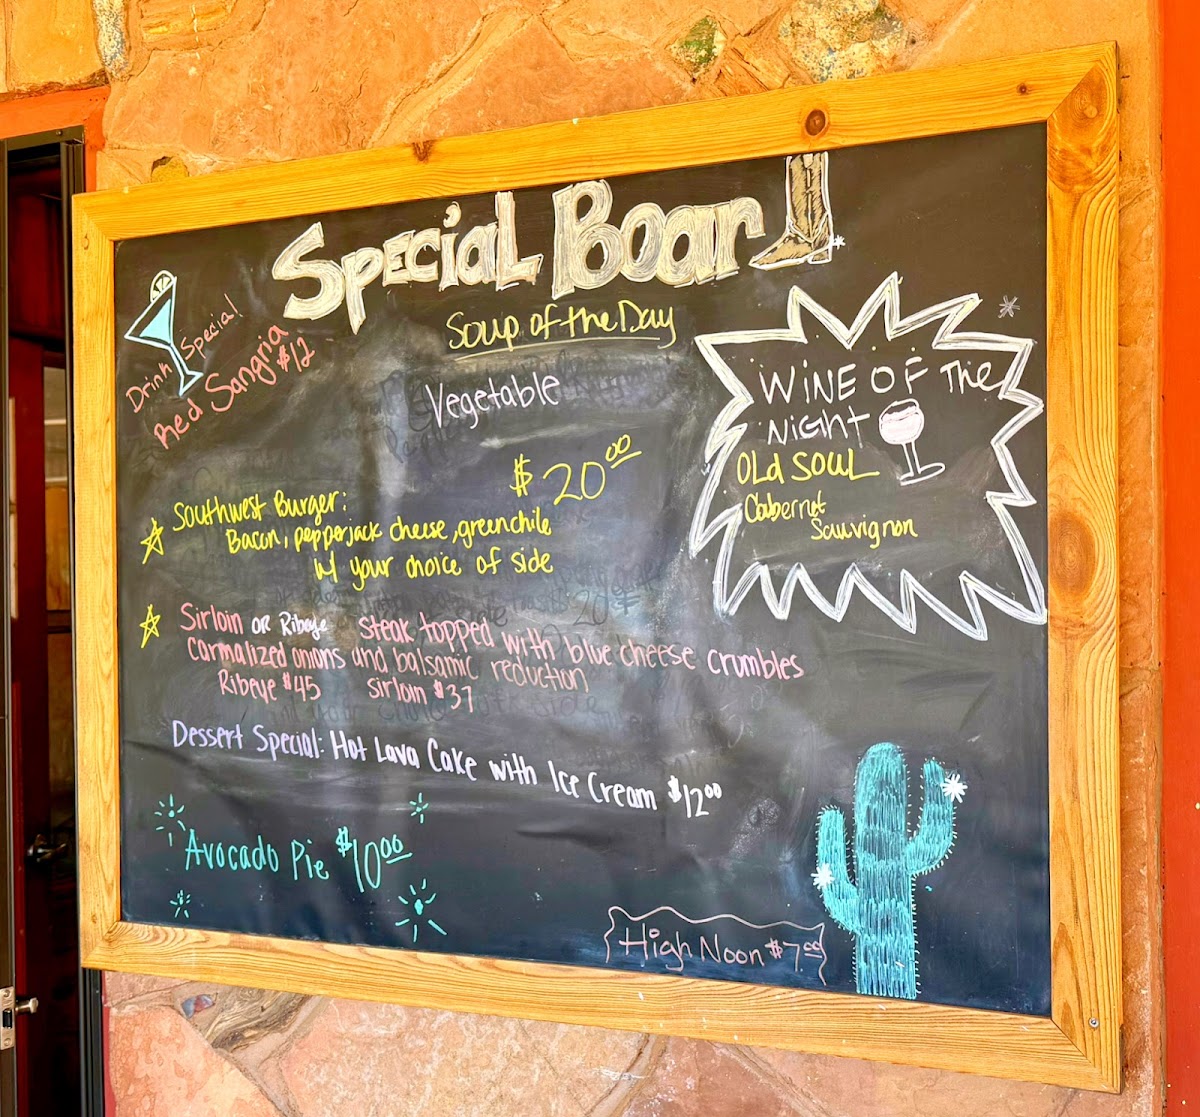 Special Board
Drink Special
Red Sangria
$12
Soup of the Day
Vegetable
WINE OF The
NIGhT
OLd SOUL
Cabernet
Sauvignon
$20.00
Southwest Burger:
Bacon, pepperjack cheese, green chile
w/ your choice of side
Sirloin OR Ribeye steak topped with blue cheese crumbles
carmalized onions and balsamic reduction
Ribeye $45 sirloin $37
Dessert Special: Hot Lava Cake with Ice Cream $12.00
Avocado Pie $10.00
High Noon $7.00